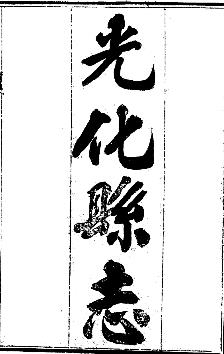 光化縣志